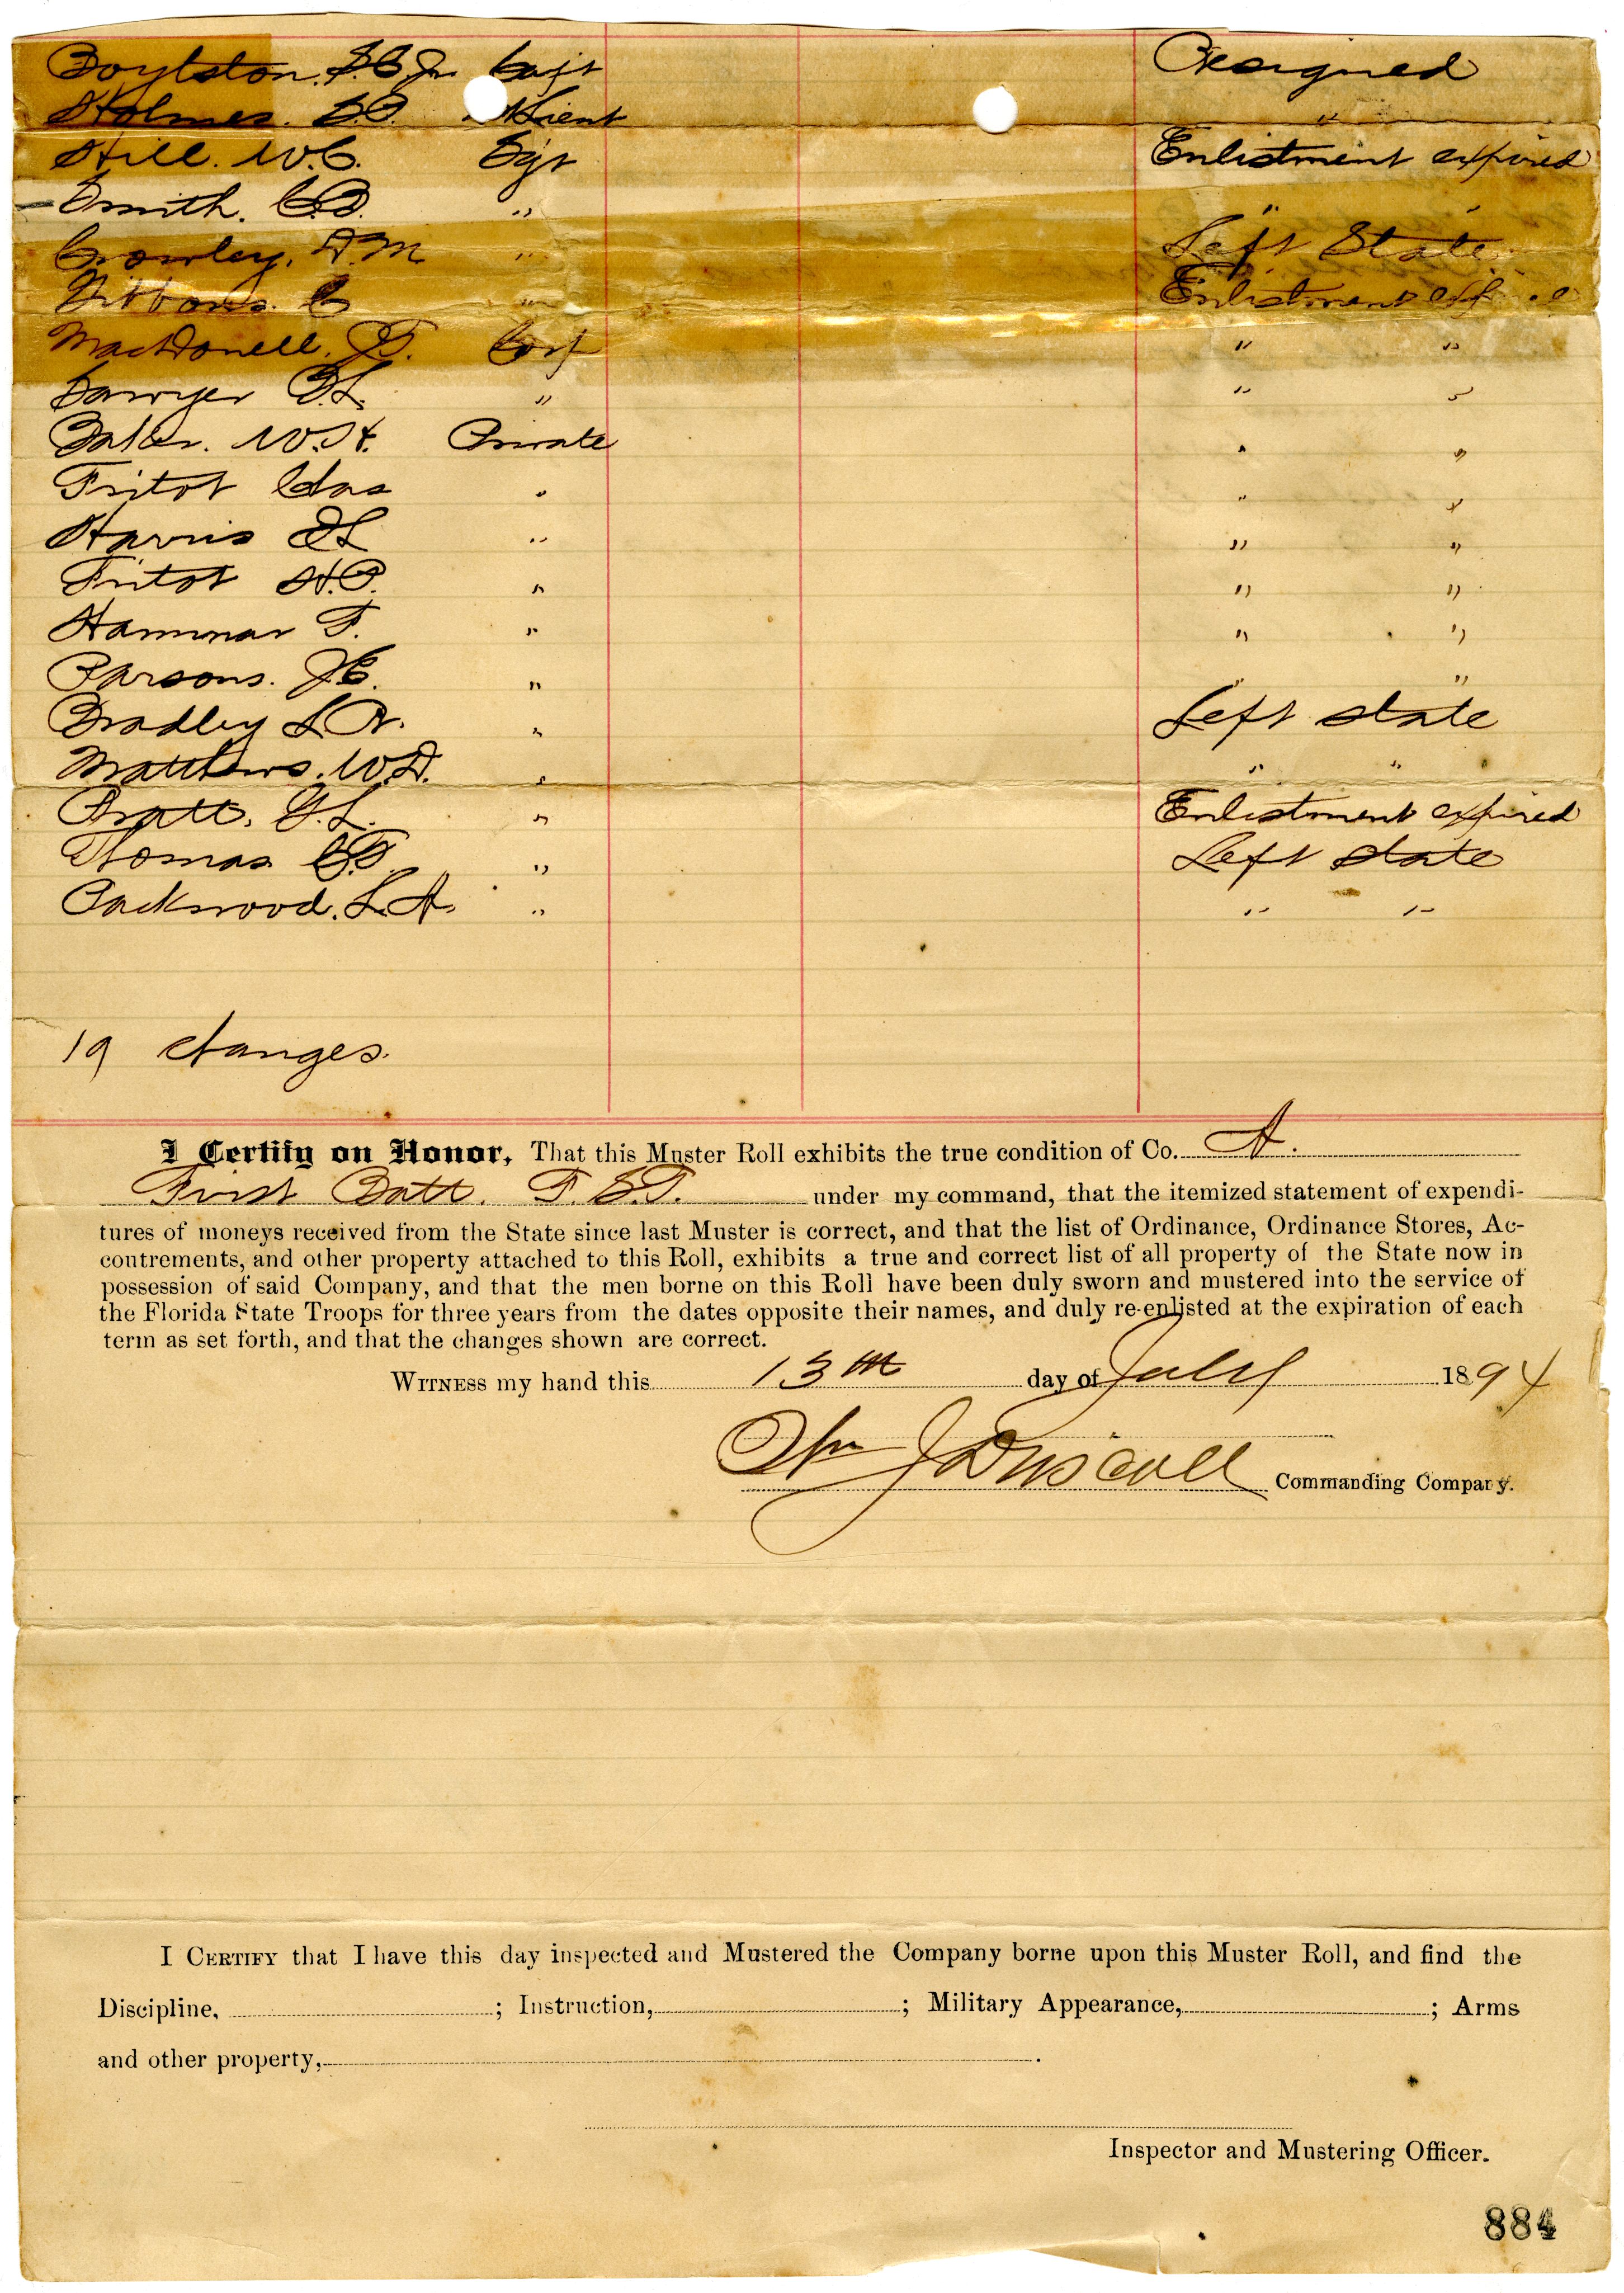 Boylston. S. C. Jr. Capt Resigned
Holmes. Lieut "
Hill. W. C. Sgt Enlistment expired
Smith. C. D. " " "
Crowley. D. M " Left State
Gibbons. C " Enlistment
MacDonell. Corp " "
Sawyer B. L. " " "
Baker. W. H. Private " "
Fritot Chas " " "
Harris " " "
Fritot H. P. " " "
Hammar F. " " "
Parsons. J. C. " " "
Bradley L. R. " Left state
Matthews. W. D. " " "
Pratt. G. L. " Enlistment expired
Thomas " Left state
Packwood. L. A. " " "
19 changes.
I Certify on Honor, That this Muster Roll exhibits the true condition of Co. A.
First Batt. F. S. T. under my command, that the itemized statement of expendi-
tures of moneys received from the State since last Muster is correct, and that the list of Ordinance, Ordinance Stores, Ac-
coutrements, and other property attached to this Roll, exhibits a true and correct list of all property of the State now in
possession of said Company, and that the men borne on this Roll have been duly sworn and mustered into the service of
the Florida State Troops for three years from the dates opposite their names, and duly re-enlisted at the expiration of each
term as set forth, and that the changes shown are correct.
WITNESS my hand this 13th day of July 1894
Wm J Driscoll Commanding Company.
I CERTIFY that I have this day inspected and Mustered the Company borne upon this Muster Roll, and find the
Discipline, ; Instruction, ; Military Appearance, ; Arms
and other property, .
Inspector and Mustering Officer.
884